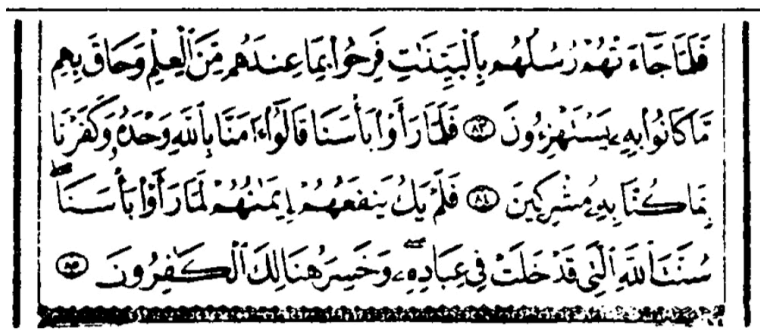 فَلَمَّا جَآءَتْهُمْ رُسُلُهُم بِٱلْبَيِّنَٰتِ فَرِحُوا۟ بِمَا عِندَهُم مِّنَ ٱلْعِلْمِ وَحَاقَ بِهِم
مَّا كَانُوا۟ بِهِۦ يَسْتَهْزِءُونَ ٨٣ فَلَمَّا رَأَوْا۟ بَأْسَنَا قَالُوٓا۟ ءَامَنَّا بِٱللَّهِ وَحْدَهُۥ وَكَفَرْنَا
بِمَا كُنَّا بِهِۦ مُشْرِكِينَ ٨٤ فَلَمْ يَكُ يَنفَعُهُمْ إِيمَٰنُهُمْ لَمَّا رَأَوْا۟ بَأْسَنَا ۖ
سُنَّتَ ٱللَّهِ ٱلَّتِى قَدْ خَلَتْ فِى عِبَادِهِۦ ۖ وَخَسِرَ هُنَالِكَ ٱلْكَٰفِرُونَ ٨٥